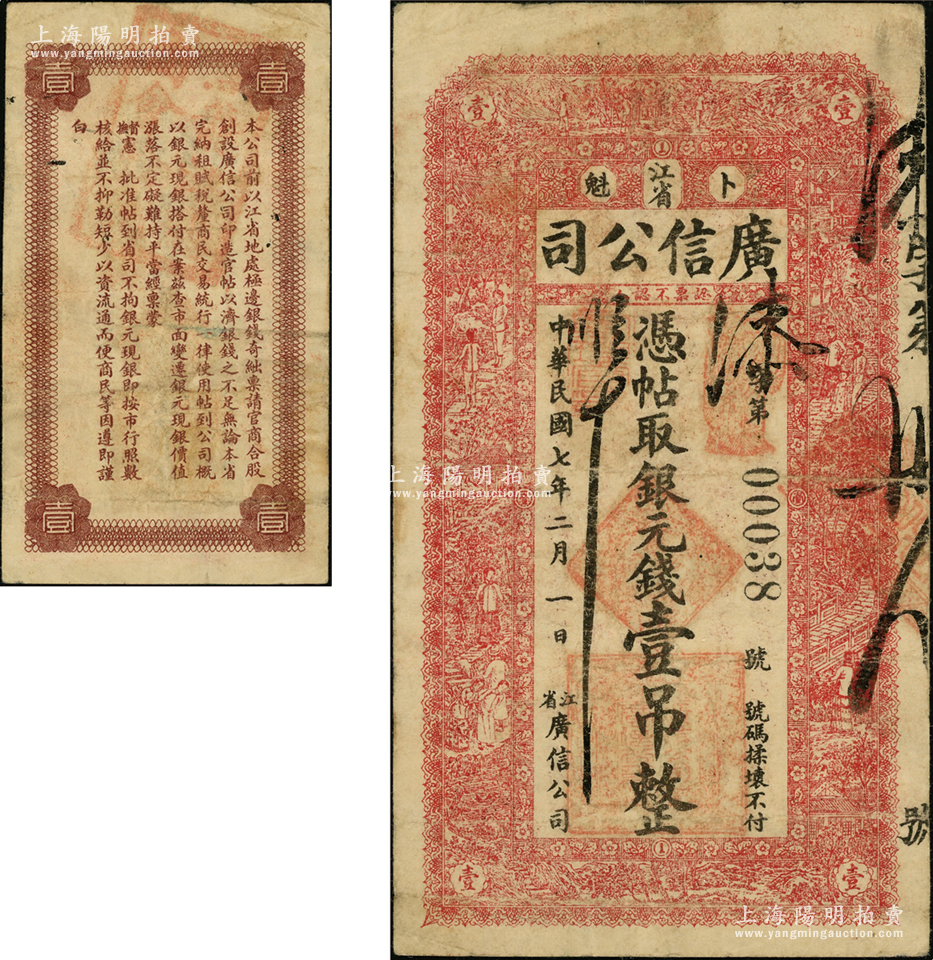 上海陽明拍賣
www.yangmingauction.com
壹 壹
本公司前以江省地處極邊銀錢奇絀票請官商合股
創設廣信公司印造官帖以濟銀錢之不足無論本省
完納租賦稅釐商民交易統行一律使用帖到公司概
以銀元現銀搭付在案茲查市面變遷銀元現銀價值
漲落不定礙難持平當經票蒙
憲 批准帖到省司不拘銀元現銀即按市行照數
核給並不抑勒短少以資流通而便商民等因遵即謹
白
壹 壹
壹 壹
卜 江省 魁
廣信公司
認不票
第
00038
號
號碼揉壞不付
憑帖取銀元錢壹吊整
中華民國七年二月一日
江省廣信公司
號
壹 壹
上海陽明拍賣
www.yangmingauction.com
上海陽明拍賣
www.yangmingauction.com